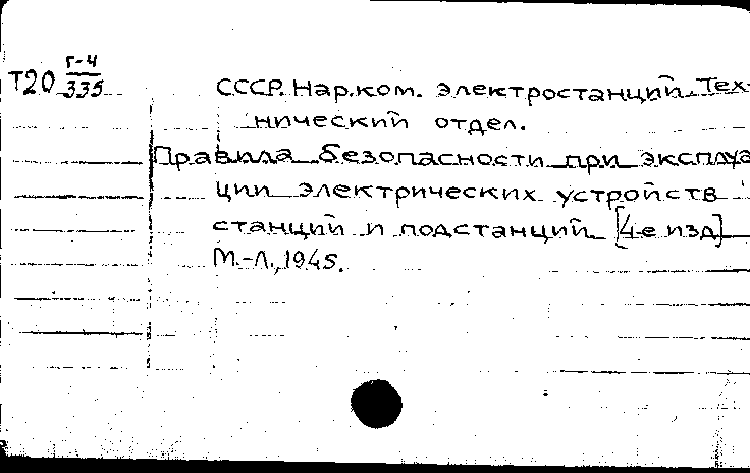 Г-4
Т20 335
СССР. Нар.ком. электростанций. Тех-
нический отдел.
Правила безопасности при эксплуа
ции электрических устройств
станций и подстанций. [4-е изд]
М.-Л., 1945.